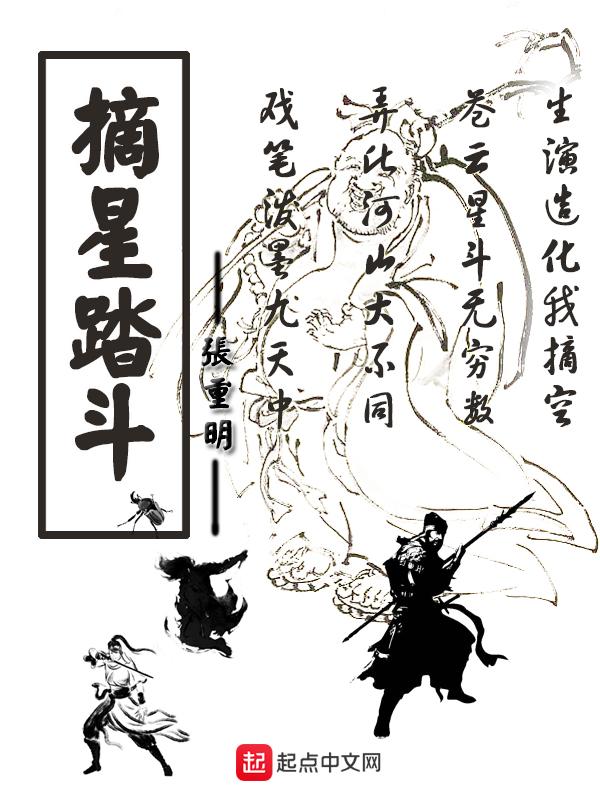 摘星踏斗
張重明
生演造化我摘空
苍云星斗无穷数
弄此河山大不同
戏笔泼墨九天中
起 起点中文网